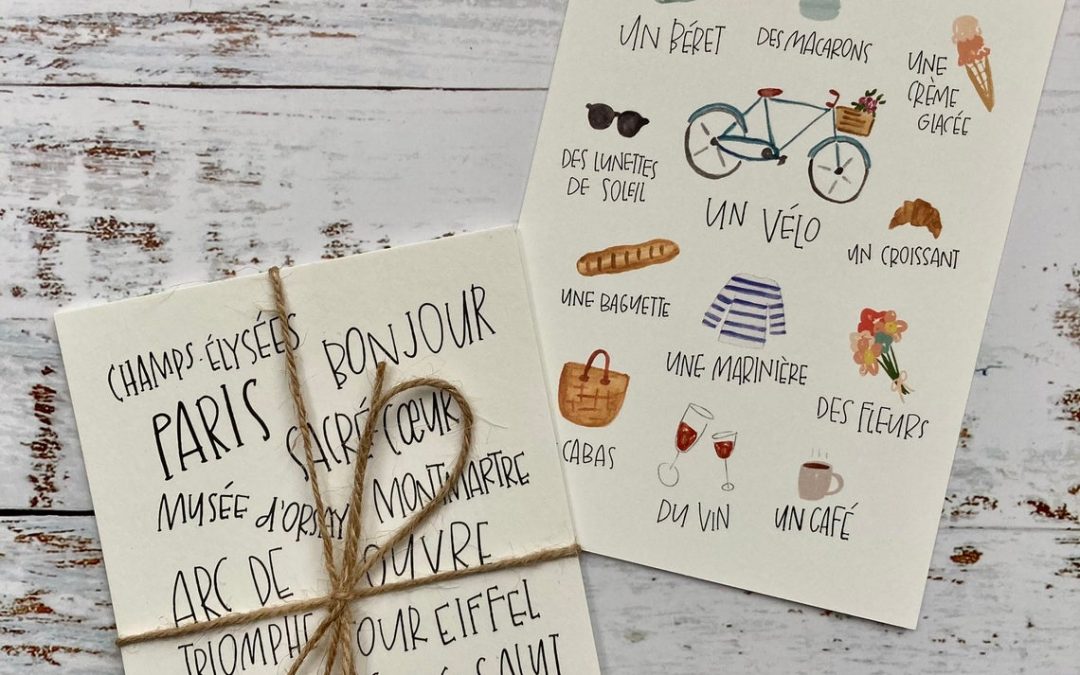 CHAMPS-ÉLYSÉES
BONJOUR
PARIS
SACRÉ-CŒUR
MUSÉE d'ORSAY
MONTMARTRE
ARC DE
TRIOMPHE
OUVRE
OUR EIFFEL
SALUT
UN BÉRET
DES MACARONS
UNE
CRÈME
GLACÉE
DES LUNETTES
DE SOLEIL
UN VÉLO
UN CROISSANT
UNE BAGUETTE
UNE MARINIÈRE
DES FLEURS
CABAS
DU VIN
UN CAFÉ